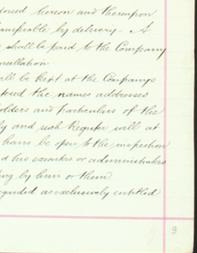 hereon and thereupon
transferable by delivery - A
shall be paid to the Company
cancellation
shall be kept at the Companys
the names addresses
holders and particulars of the
and such Register will at
hours be open to the inspection
his executors or administrators
by him or them
regarded as exclusively entitled
9